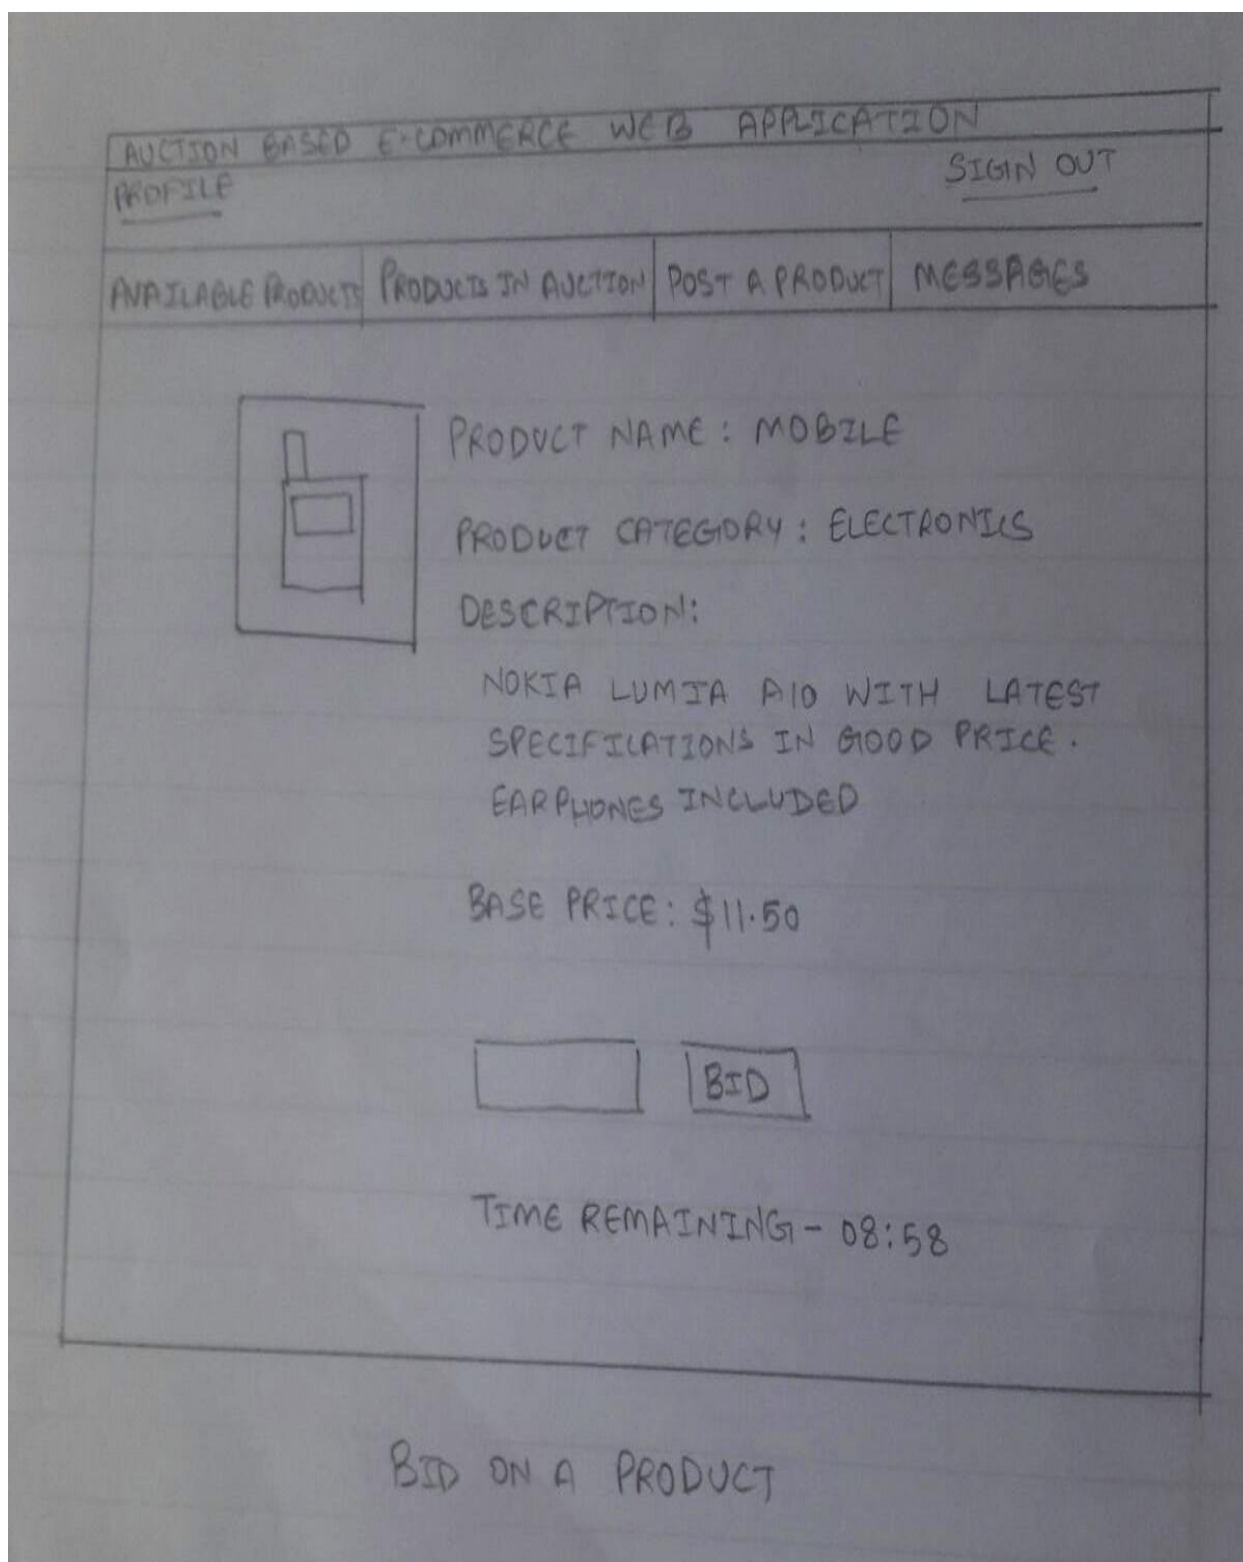 AUCTION BASED E-COMMERCE WEB APPLICATION
PROFILE SIGIN OUT
AVAILABLE PRODUCTS PRODUCTS IN AUCTION POST A PRODUCT MESSAGES
PRODUCT NAME: MOBILE
PRODUCT CATEGORY: ELECTRONICS
DESCRIPTION:
NOKIA LUMIA A10 WITH LATEST
SPECIFICATIONS IN GOOD PRICE.
EARPHONES INCLUDED
BASE PRICE: $11.50
BID
TIME REMAINING - 08:58
BID ON A PRODUCT